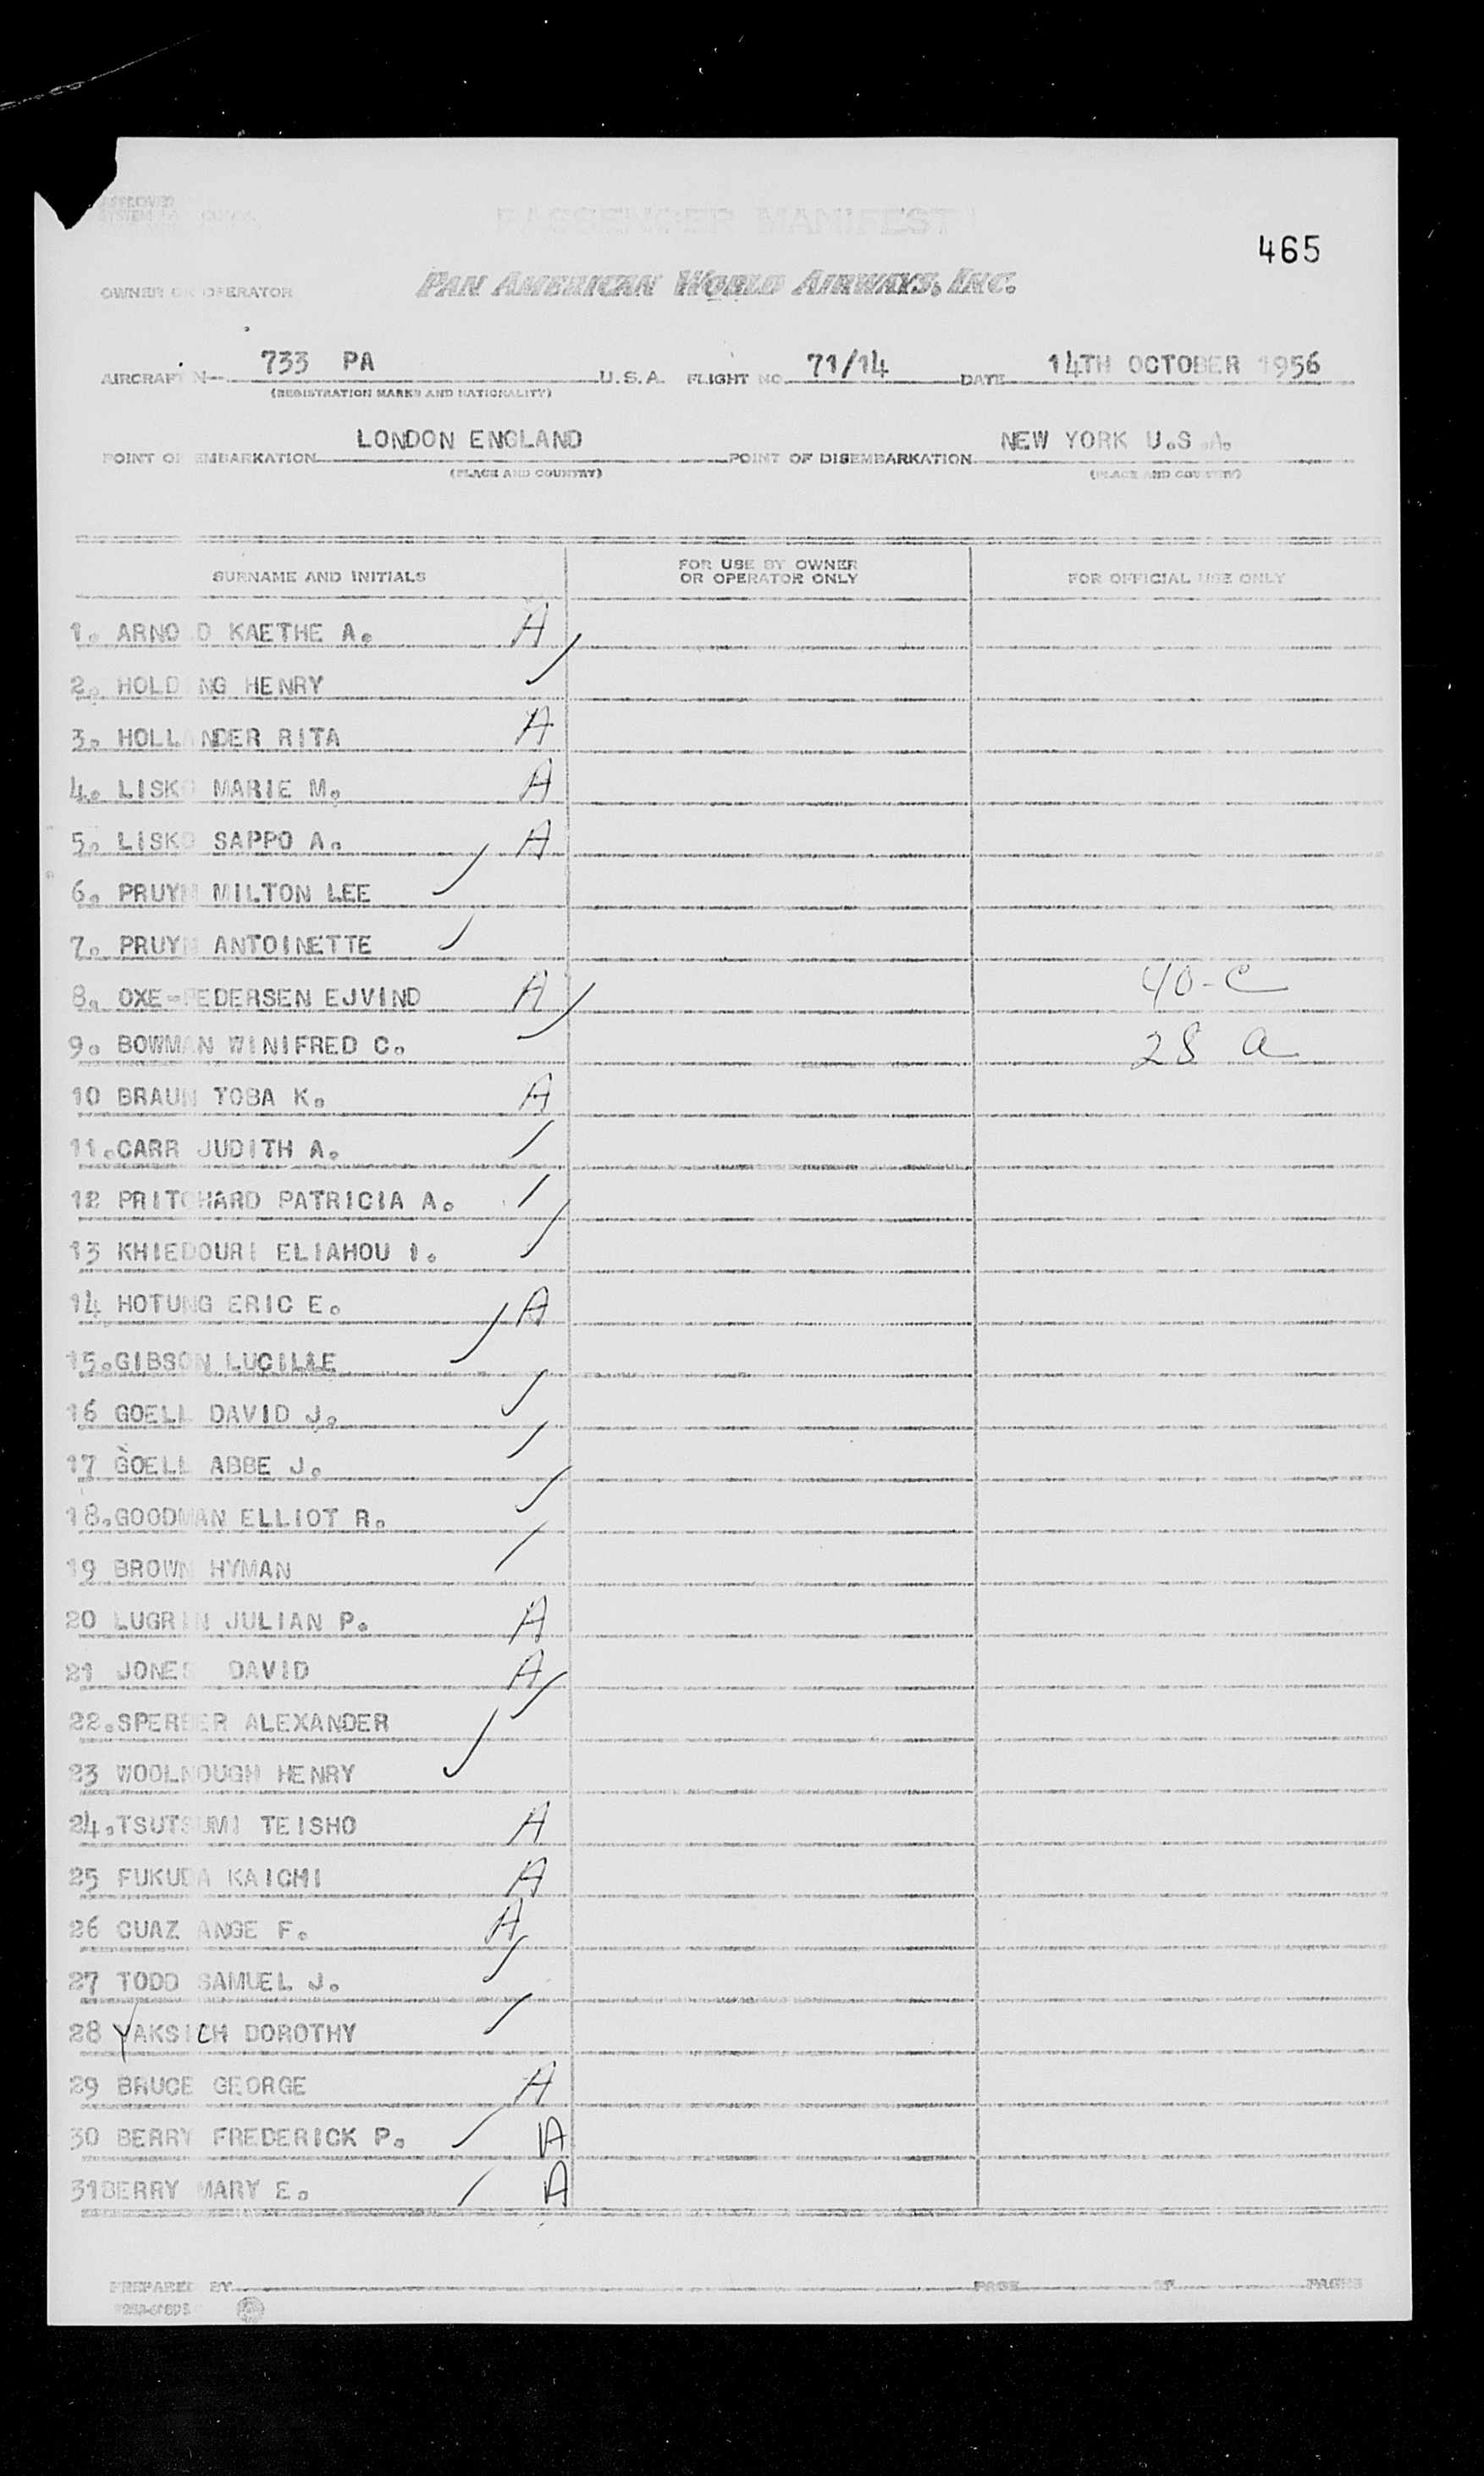 PASSENGER MANIFEST
465
OWNER OR OPERATOR PAN AMERICAN WORLD AIRWAYS, INC.
AIRCRAFT N 733 PA U.S.A. FLIGHT NO. 71/14 DATE 14TH OCTOBER 1956
(REGISTRATION MARKS AND NATIONALITY)
POINT OF EMBARKATION LONDON ENGLAND POINT OF DISEMBARKATION NEW YORK U.S.A.
(PLACE AND COUNTRY) (PLACE AND COUNTRY)
SURNAME AND INITIALS FOR USE BY OWNER OR OPERATOR ONLY FOR OFFICIAL USE ONLY
1. ARNO D KAETHE A. A
2. HOLD NG HENRY
3. HOLLANDER RITA A
4. LISKO MARIE M. A
5. LISKO SAPPO A. A
6. PRUYN MILTON LEE
7. PRUYN ANTOINETTE
8. OXE-PEDERSEN EJVIND A 40-C
9. BOWMAN WINIFRED C. 28 a
10 BRAUN TOBA K. A
11.CARR JUDITH A.
12 PRITCHARD PATRICIA A.
13 KHIEDOURI ELIAHOU I.
14 HOTUNG ERIC E. A
15.GIBSON LUCILLE
16 GOELL DAVID J.
17 GOELL ABBE J.
18.GOODMAN ELLIOT R.
19 BROWN HYMAN
20 LUGRIN JULIAN P. A
21 JONES DAVID A
22.SPERBER ALEXANDER
23 WOOLNOUGH HENRY
24.TSUTSUMI TEISHO A
25 FUKUDA KAICHI A
26 CUAZ ANGE F. A
27 TODD SAMUEL J.
28 YAKSICH DOROTHY
29 BRUCE GEORGE A
30 BERRY FREDERICK P. A
31BERRY MARY E. A
PREPARED BY PAGE OF PAGES